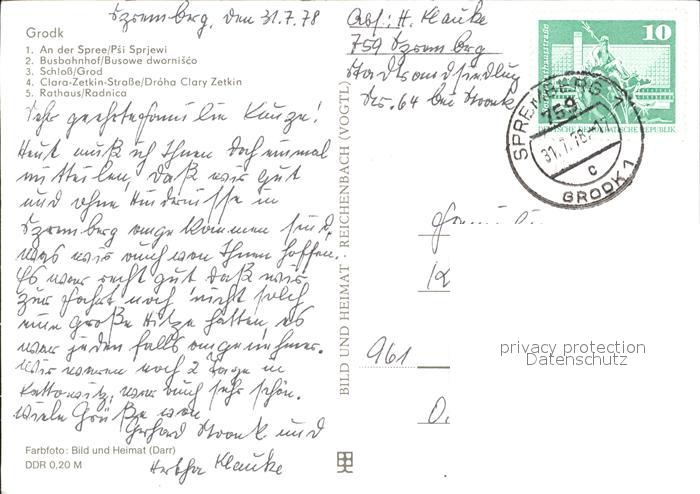 Grodk
1. An der Spree/Pśi Sprjewi
2. Busbahnhof/Busowe dwornišćo
3. Schloß/Grod
4. Clara-Zetkin-Straße/Dróha Clary Zetkin
5. Rathaus/Radnica
Szremberg, den 31.7.78
Sehr geehrte Familie Kauze!
Heut muß ich Ihnen doch einmal
mitteilen, daß wir gut
und ohne Hindernisse in
Szremberg angekommen sind,
was wir auch von Ihnen hoffen.
Es war recht gut daß wir
zur Fahrt noch nicht solch
eine große Hitze hatten, es
war jeden falls angenehmer.
Wir waren noch 2 Tage in
Kattowitz, war auch sehr schön.
Viele Grüße von
Gerhard und
Hertha Klauke
Farbfoto: Bild und Heimat (Darr)
DDR 0,20 M
BILD UND HEIMAT · REICHENBACH (VOGTL)
Abs: H. Klauke
759 Szremberg
Stadtrandsiedlung
Nr. 64 bei
10
DEUTSCHE DEMOKRATISCHE REPUBLIK
SPREMBERG 1
759
31.7.78
c
GRODK 1
961
privacy protection
Datenschutz